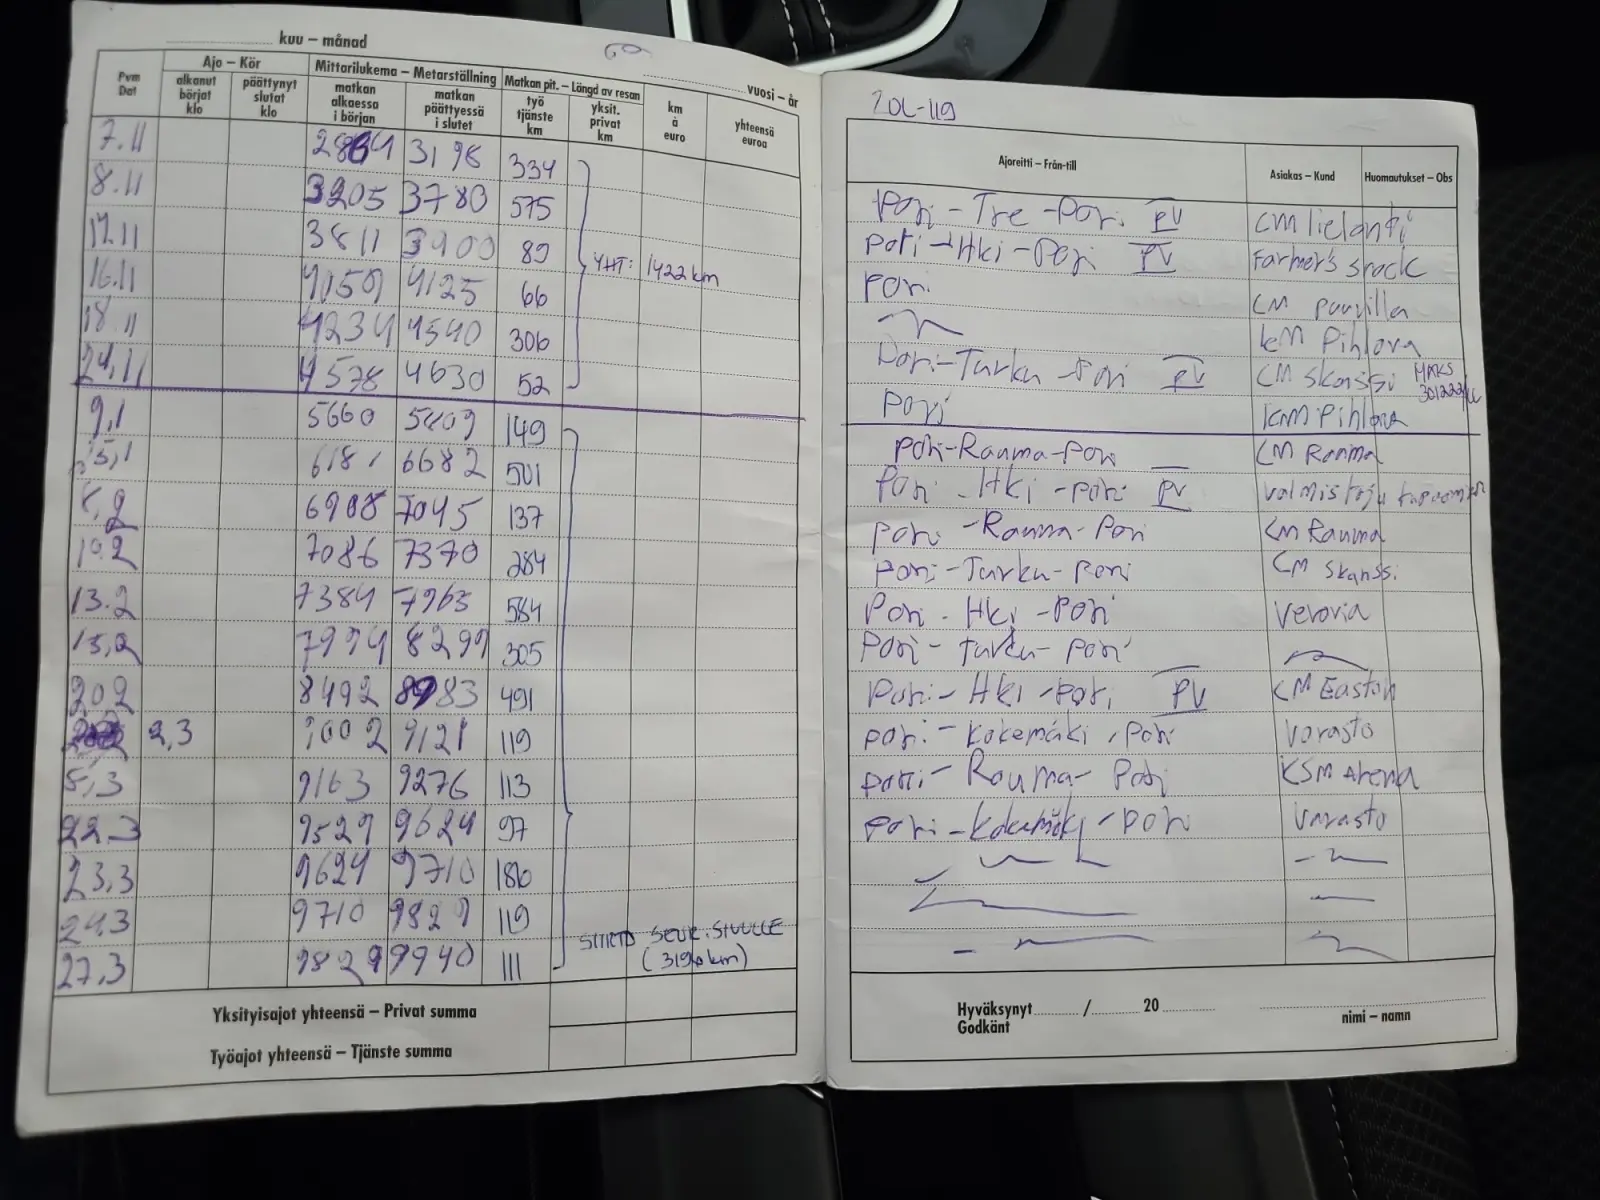 kuu – månad
vuosi – år
Pvm Dat
Ajo – Kör
alkanut börjat klo
päättynyt slutat klo
Mittarilukema – Metarställning
matkan alkaessa i början
matkan päättyessä i slutet
Matkan pit. – Längd av resan
työ tjänste km
yksit. privat km
km à euro
yhteensä euroa
7.11 2864 3198 334
8.11 3205 3780 575
3811 3900 89
16.11 4059 4125 66
18.11 4234 4540 306
24.11 4578 4630 52
YHT: 1422 km
9.1 5660 5809 149
15,1 6181 6682 501
8,2 6908 7045 137
10.2 7086 7370 284
13.2 7384 7965 584
15,2 7994 8299 305
20.2 8492 8983 491
2,3 9002 9121 119
5,3 9163 9276 113
22.3 9527 9624 97
23,3 9624 9710 186
24.3 9710 9829 119
27,3 9829 9940 111
SIIRTO SEUR. SIVULLE
(3196 km)
Yksityisajot yhteensä – Privat summa
Työajot yhteensä – Tjänste summa
ZOL-119
Ajoreitti – Från-till
Asiakas – Kund
Huomautukset – Obs
Pori - Tre - Pori PV CM lielahti
Pori - Hki - Pori PV Farmer's snack
Pori CM puuvilla
KM Pihlava
Pori - Turku - Pori PV CM Skanssi MAKS
Pori KM Pihlava
Pori - Rauma - Pori CM Rauma
Pori - Hki - Pori PV
Pori - Rauma - Pori CM Rauma
Pori - Turku - Pori CM Skanssi
Pori - Hki - Pori
Pori - Turku - Pori
Pori - Hki - Pori PV CM Easton
Pori - Kokemäki, Pori Varasto
Pori - Rauma - Pori KSM Arena
Pori - Kokemäki - Pori Varasto
Hyväksynyt Godkänt / 20
nimi – namn